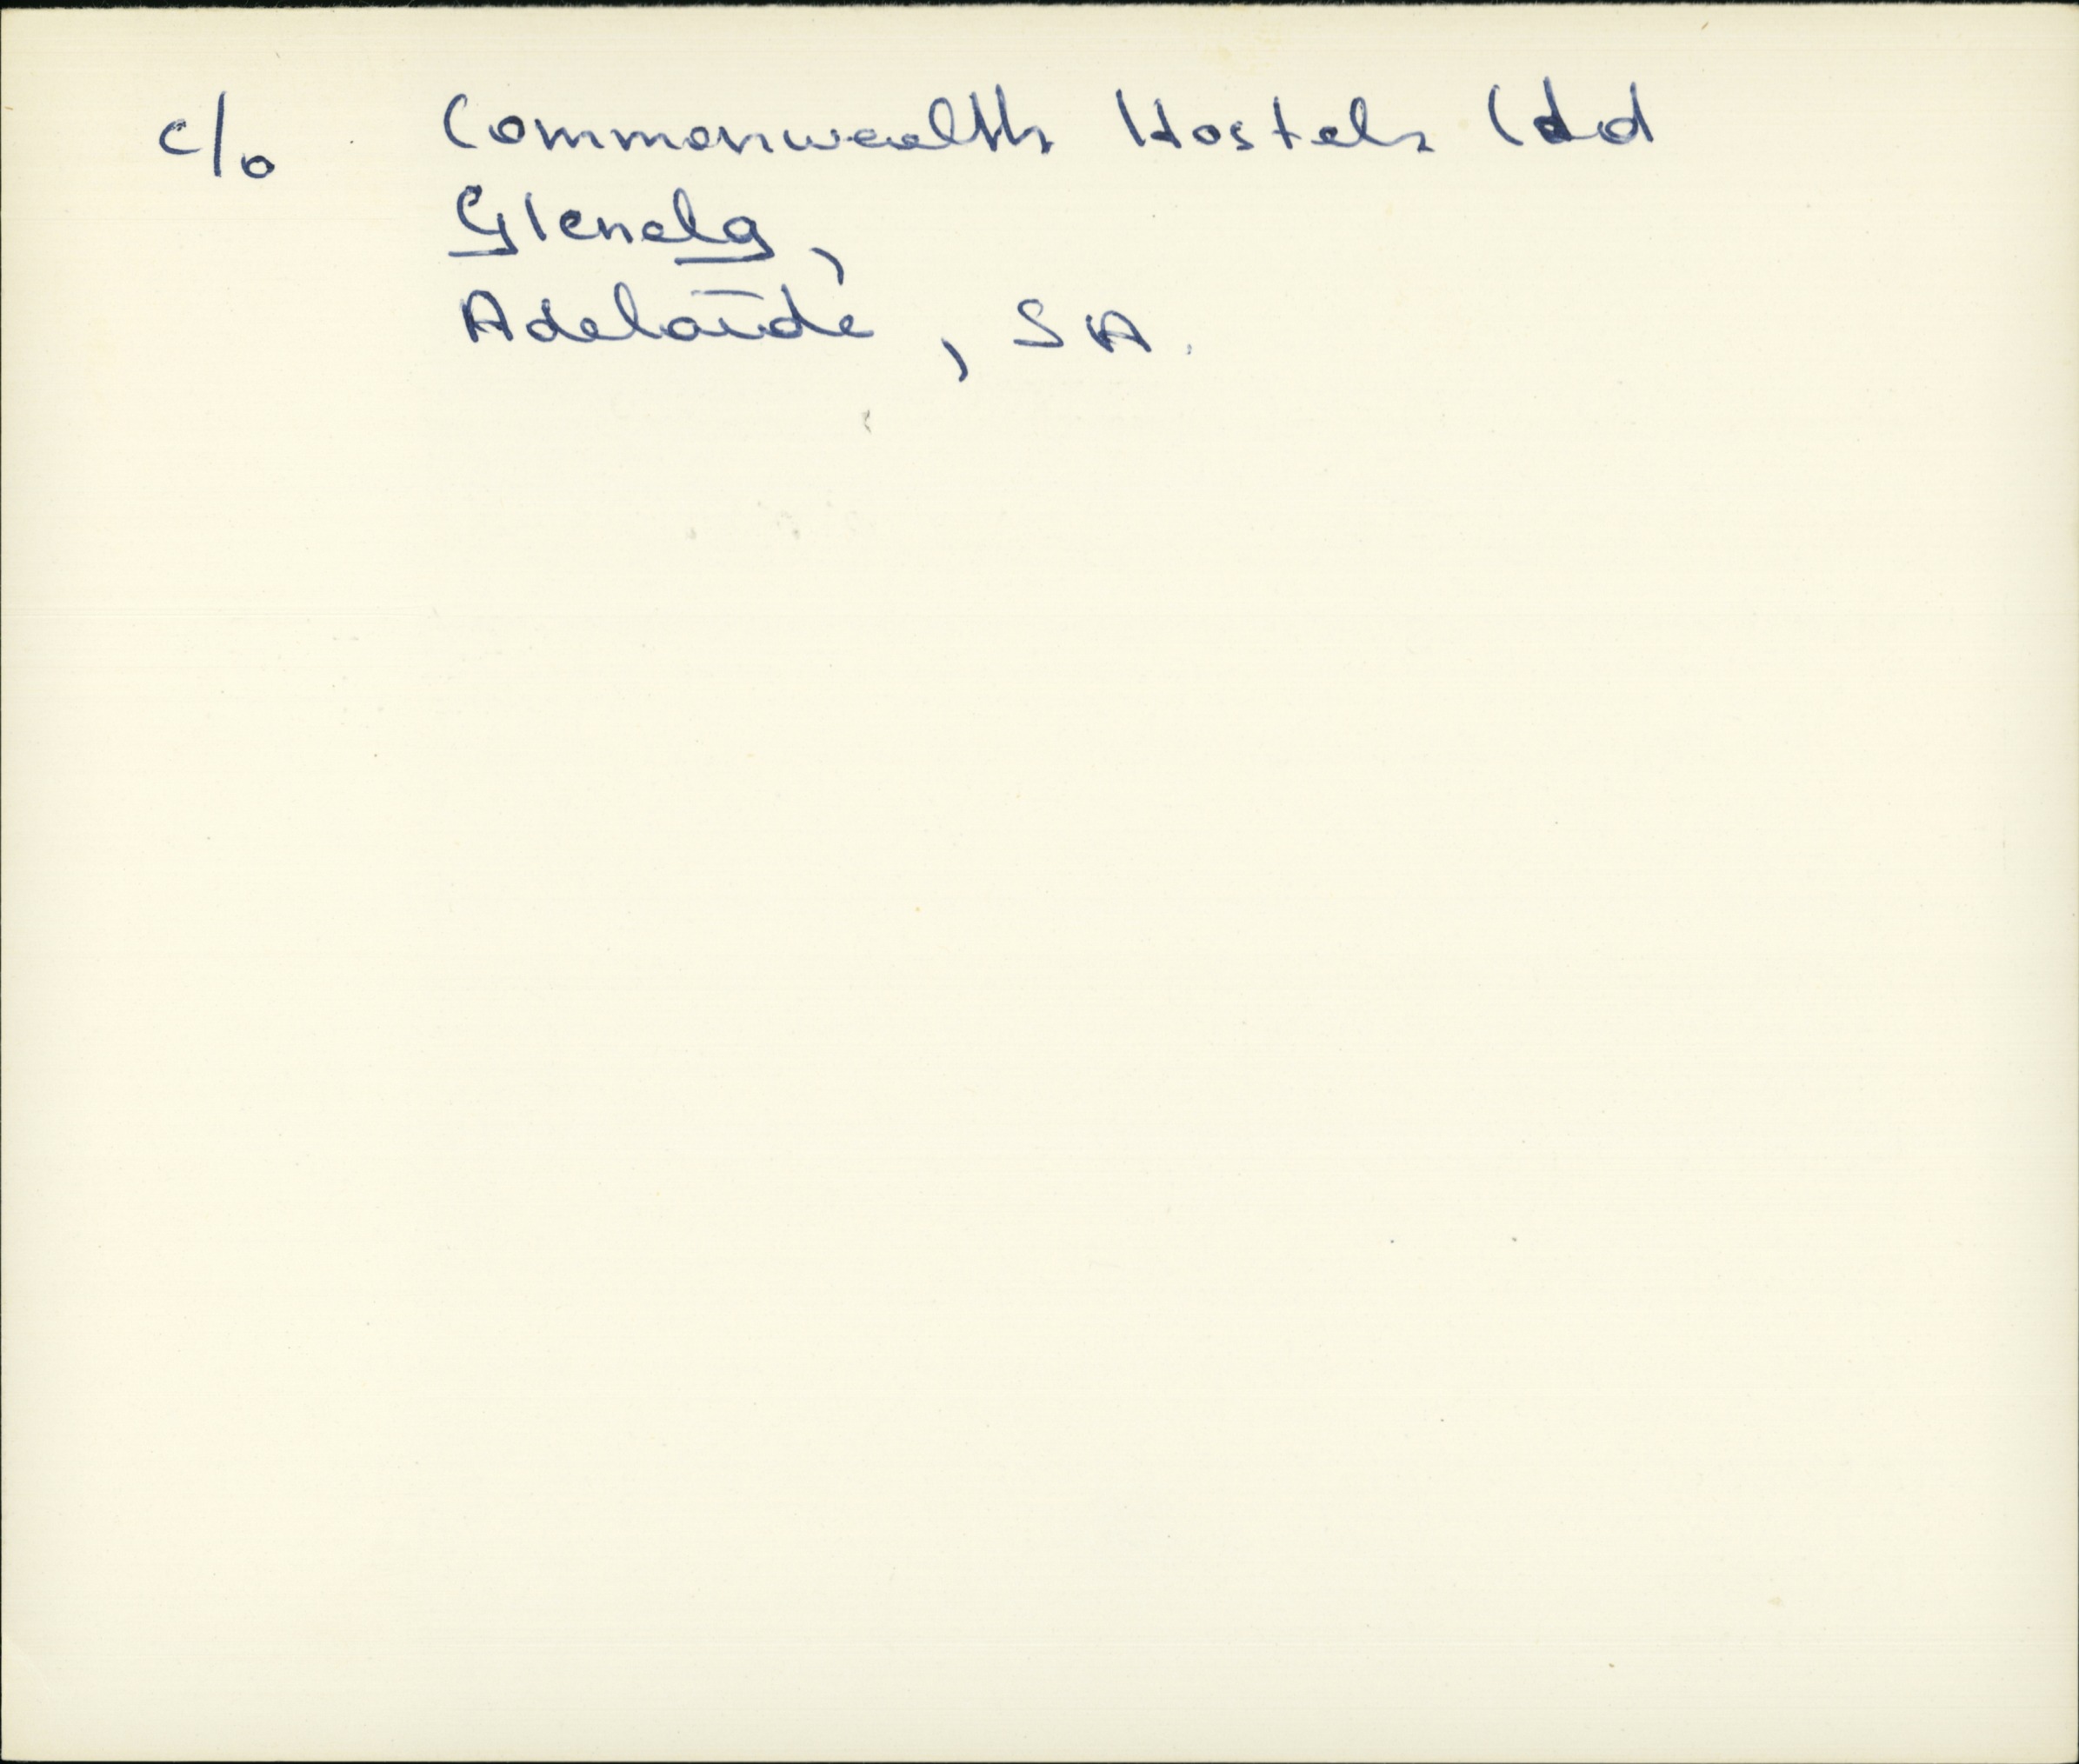 c/o Commonwealth Hostels Ltd
Glenelg,
Adelaide, SA.